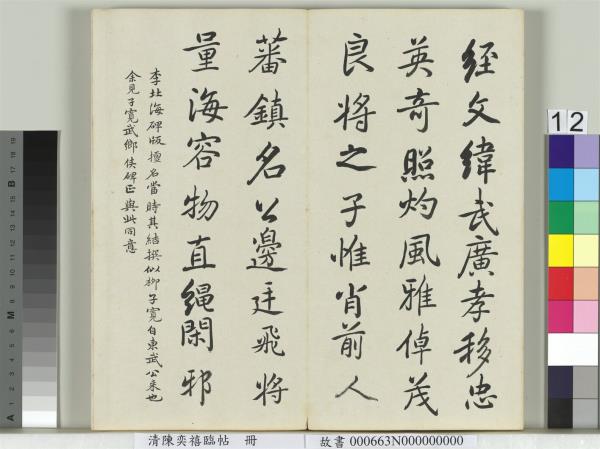 經文緯武廣孝移忠
英奇照灼風雅倬茂
良將之子惟肖前人
蕃鎮名公邊廷飛將
量海容物直繩閑邪
李北海碑版擅名當時其結撰似柳子寬自東武公來也
余見子寬武鄉侯碑正與此同意
12
清陳奕禧臨帖 冊
故書 000663N000000000